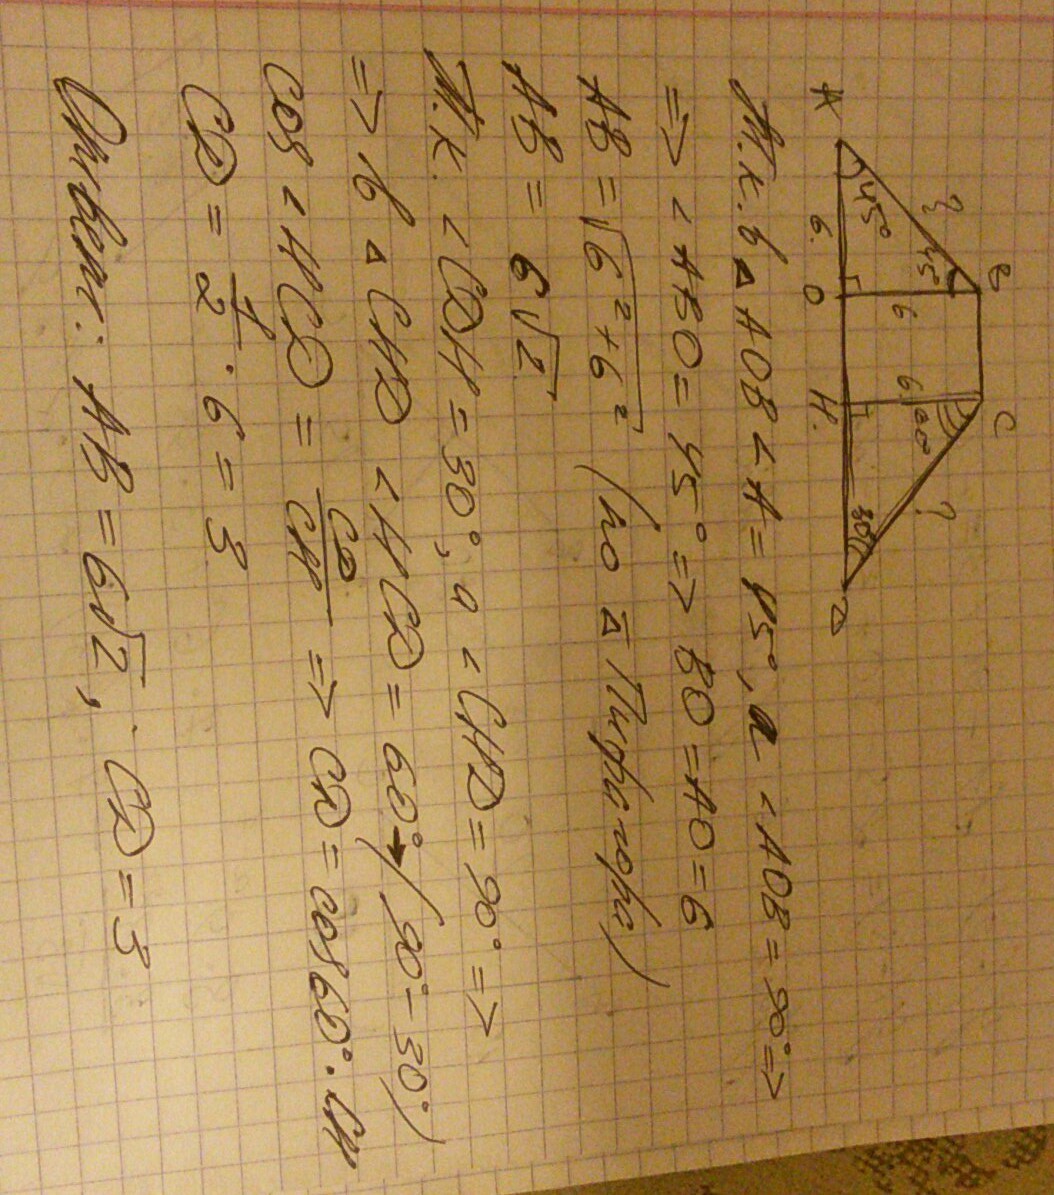 A 45° 6. O H. D
? 45° B 6
6 60° C ? 30°
Т.к. в △ AOB < A = 45°, а < AOB = 90° =>
=> < ABO = 45° => BO = AO = 6
AB = √6² + 6² (по △ Пифагора)
AB = 6√2
Т.к. < CDH = 30°, а < CHD = 90° =>
=> в △ CHD < HCD = 60° (90° - 30°)
cos < HCD = CD/CH => CD = cos 60° · CH
CD = 1/2 · 6 = 3
Ответ: AB = 6√2, CD = 3